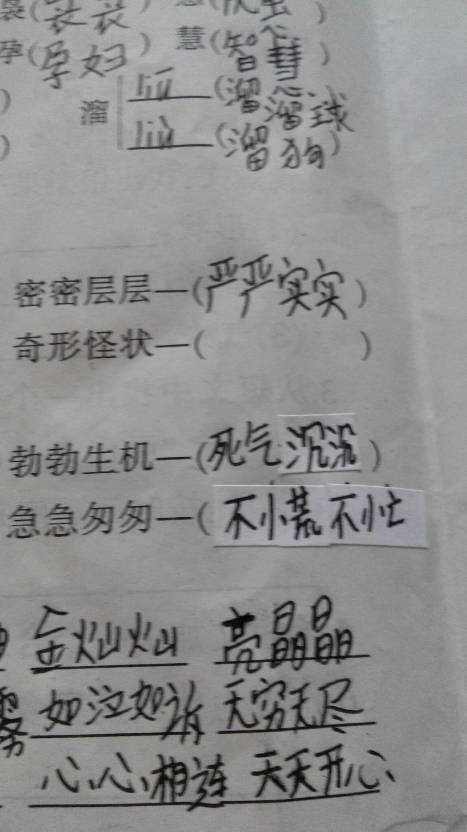 袅(袅袅)
孕(孕妇) 慧(智慧)
) 溜 liū(溜溜球
) liù(溜狗)
密密层层—(严严实实)
奇形怪状—( )
勃勃生机—(死气沉沉)
急急匆匆—(不慌不忙
金灿灿 亮晶晶
如泣如诉 无穷无尽
心心相连 天天开心